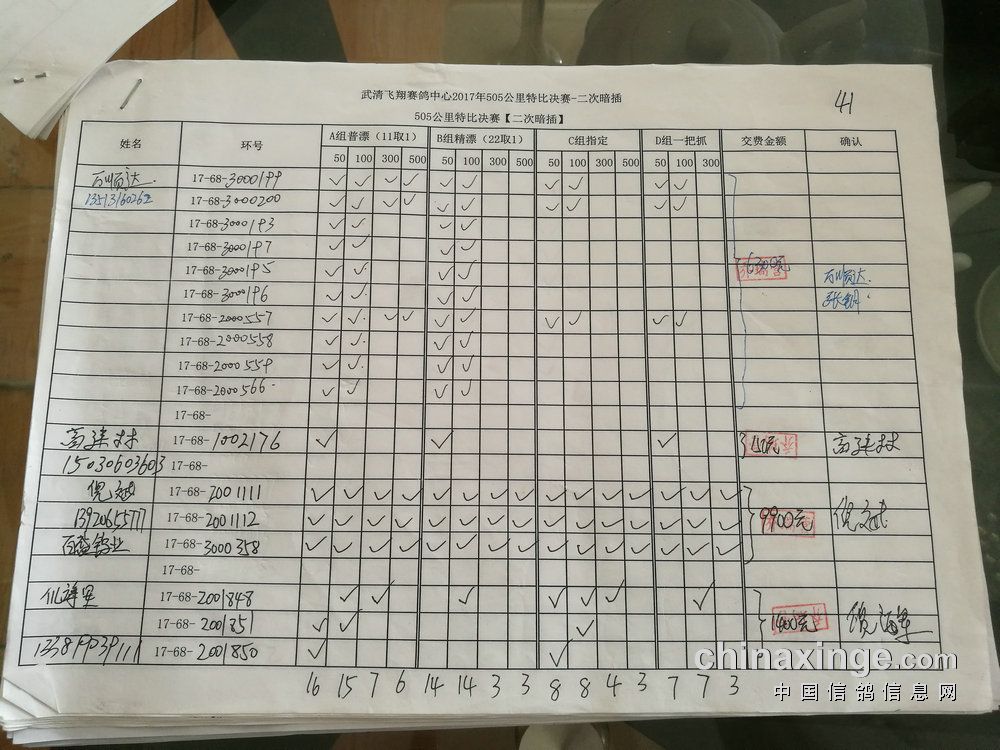 武清飞翔赛鸽中心2017年505公里特比决赛-二次暗插
41
505公里特比决赛【二次暗插】
姓名 环号 A组普漂（11取1） B组精漂（22取1） C组指定 D组一把抓 交费金额 确认
50 100 300 500 50 100 300 500 50 100 300 500 50 100 300
17-68-3000199 ✓ ✓ ✓ ✓ ✓ ✓ ✓ ✓ ✓ ✓
17-68-3000200 ✓ ✓ ✓ ✓ ✓ ✓ ✓ ✓ ✓ ✓
17-68-3000193 ✓ ✓ ✓ ✓
17-68-3000197 ✓ ✓ ✓ ✓
17-68-3000195 ✓ ✓ ✓ ✓
17-68-3000196 ✓ ✓ ✓ ✓
17-68-2000557 ✓ ✓ ✓ ✓ ✓ ✓ ✓ ✓ ✓ ✓
17-68-2000558 ✓ ✓ ✓ ✓
17-68-2000559 ✓ ✓ ✓ ✓
17-68-2000566 ✓ ✓ ✓ ✓
17-68-
17-68-1002176 ✓ ✓ ✓ 150元
15030603603 17-68-
17-68-2001111 ✓ ✓ ✓ ✓ ✓ ✓ ✓ ✓ ✓ ✓ ✓ ✓ ✓ ✓ ✓
17-68-2001112 ✓ ✓ ✓ ✓ ✓ ✓ ✓ ✓ ✓ ✓ ✓ ✓ ✓ ✓ ✓ 9900元
17-68-3000358 ✓ ✓ ✓ ✓ ✓ ✓ ✓ ✓ ✓ ✓ ✓ ✓ ✓ ✓ ✓
17-68-
17-68-2001848 ✓ ✓ ✓ ✓ ✓ ✓ ✓
17-68-2001851 ✓ ✓ ✓ 1400元
17-68-2001850 ✓ ✓
16 15 7 6 14 14 3 3 8 8 4 3 7 7 3
chinaxinge.com
中国信鸽信息网